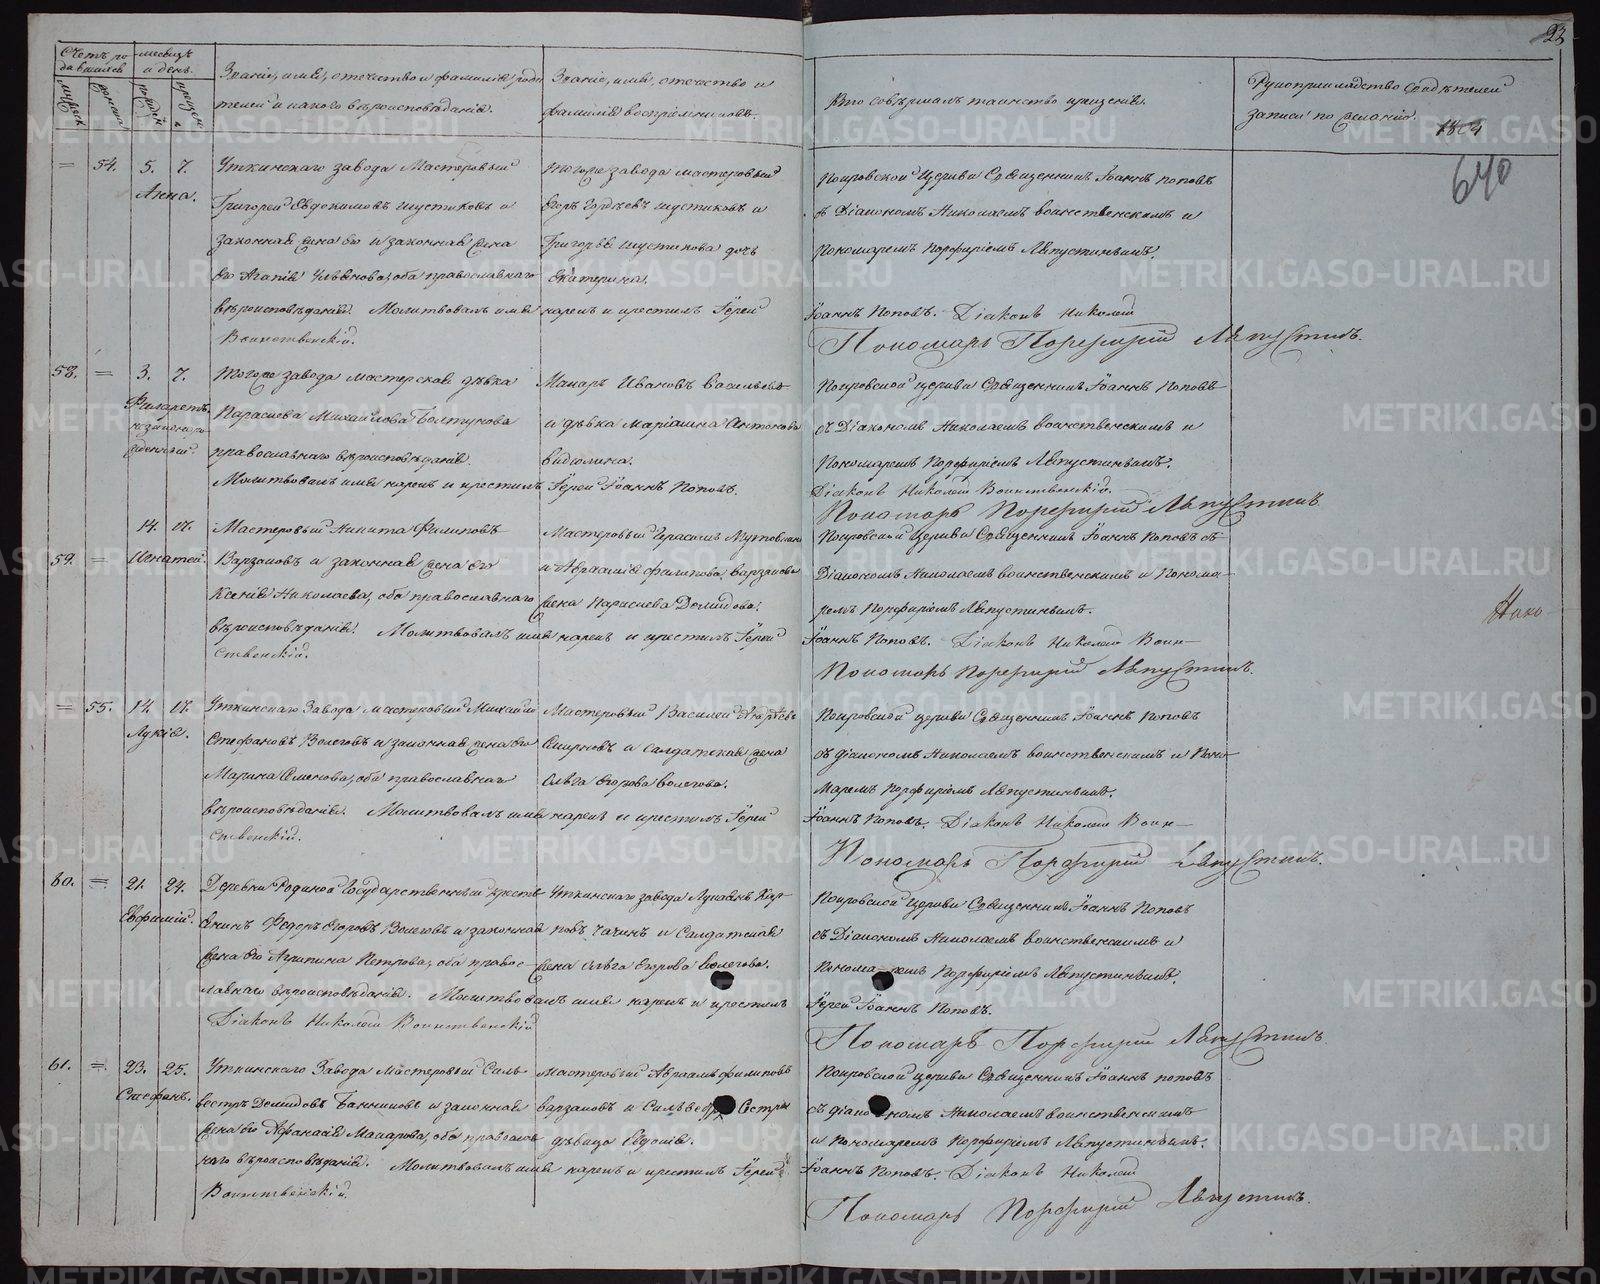 23
Счетъ ро-
дившихся
мѣсяцъ
и день.
мужеск
женска
рожден
крещен
Званіе, имя, отечество и фамилія роди
телей и какого вѣроисповѣданія.
Званіе, имя, отечество и
фамилія воспріемниковъ.
Кто совершалъ таинство крещенія.
Рукоприкладство свидѣтелей
записи по желанію.
640
54. 5. 7.
Анна.
Уткинскаго завода Мастеровый
Григорей Евдокимовъ Шустиковъ и
законная жена его и законная жена
его Агапія Ульянова, оба православнаго
вѣроисповѣданія. Молитвовалъ имя нарекъ и крестилъ Іерей
Воинственскій.
тогоже завода мастеровый
Егоръ Гордѣевъ Шустиковъ и
Григорья Шустикова дочь
Екатерина.
Покровской Церкви Священникъ Іоаннъ Поповъ
съ Діакономъ Николаемъ Воинственскимъ и
Пономаремъ Порфиріемъ Августиновымъ.
Іоаннъ Поповъ. Діаконъ Николай
Пономарь Порфирій Августинъ.
58. 3. 7.
Филаретъ
незаконно ро
жденный.
Тогоже завода мастерская дѣвка
Параскева Михайлова Болтунова
православнаго вѣроисповѣданія.
Молитвовалъ имя нарекъ и крестилъ Іерей Іоаннъ Поповъ.
Макаръ Ивановъ Васильевъ
и дѣвка Маріамна Антонова
Покровской церкви Священникъ Іоаннъ Поповъ
съ Діакономъ Николаемъ Воинственскимъ и
Пономаремъ Порфиріемъ Августиновымъ.
Діаконъ Николай Воинственскій.
Пономарь Порфирій Августинъ
59. 14. 17.
Игнатей.
Мастеровый Никита Филиповъ
Варзаковъ и законная жена его
Ксенія Николаева, оба православнаго
вѣроисповѣданія. Молитвовалъ имя нарекъ и крестилъ Іерей
ственскій.
Мастеровый Герасимъ
и Авраамія Филипова Варзакова
жена Параскева Демидова.
Покровской Церкви Священникъ Іоаннъ Поповъ съ
Діакономъ Николаемъ Воинственскимъ и Понома-
ремъ Порфиріемъ Августиновымъ.
Іоаннъ Поповъ. Діаконъ Николай Воин-
Пономарь Порфирій Августинъ.
55. 14. 17.
Лукія.
Уткинскаго Завода мастеровый Михайло
Стефановъ Волеговъ и законная жена его
Марина Семенова, оба православнаго
вѣроисповѣданія. Молитвовалъ имя нарекъ и крестилъ Іерей
ственскій.
Мастеровый Василей Андрѣевъ
Смирновъ и салдатская жена
Ольга Егорова Волегова.
Покровской церкви Священникъ Іоаннъ Поповъ
съ діакономъ Николаемъ Воинственскимъ и Поно-
маремъ Порфиріемъ Августиновымъ.
Іоаннъ Поповъ. Діаконъ Николай Воин-
Пономарь Порфирій Августинъ.
60. 21. 24.
Евфимій.
Деревни Родиной Государственный кресть
янинъ Федоръ Егоровъ Волеговъ и законная
жена его Агрипина Петрова, оба правос-
лавнаго вѣроисповѣданія. Молитвовалъ имя нарекъ и крестилъ
Діаконъ Николай Воинственскій
Уткинскаго завода Лукаянъ Кар-
повъ Чачинъ и Салдатская
жена Ольга Егорова Волегова.
Покровской Церкви Священникъ Іоаннъ Поповъ
съ Діакономъ Николаемъ Воинственскимъ и
Пономаремъ Порфиріемъ Августиновымъ.
Іерей Іоаннъ Поповъ.
Пономарь Порфирій Августинъ
61. 23. 25.
Стефанъ.
Уткинскаго Завода Мастеровый Силь
вестръ Демидовъ Банниковъ и законная
жена его Афанасія Макарова, оба православ
наго вѣроисповѣданія. Молитвовалъ имя нарекъ и крестилъ Іерей
Воинственскій.
мастеровый Авраамъ Филиповъ
Варзаковъ и Сильвестра Сестра
дѣвица Евдокія.
Покровской церкви Священникъ Іоаннъ Поповъ
съ діакономъ Николаемъ Воинственскимъ
и Пономаремъ Порфиріемъ Августиновымъ.
Іоаннъ Поповъ. Діаконъ Николай
Пономарь Порфирій Августинъ.
METRIKI.GASO-URAL.RU